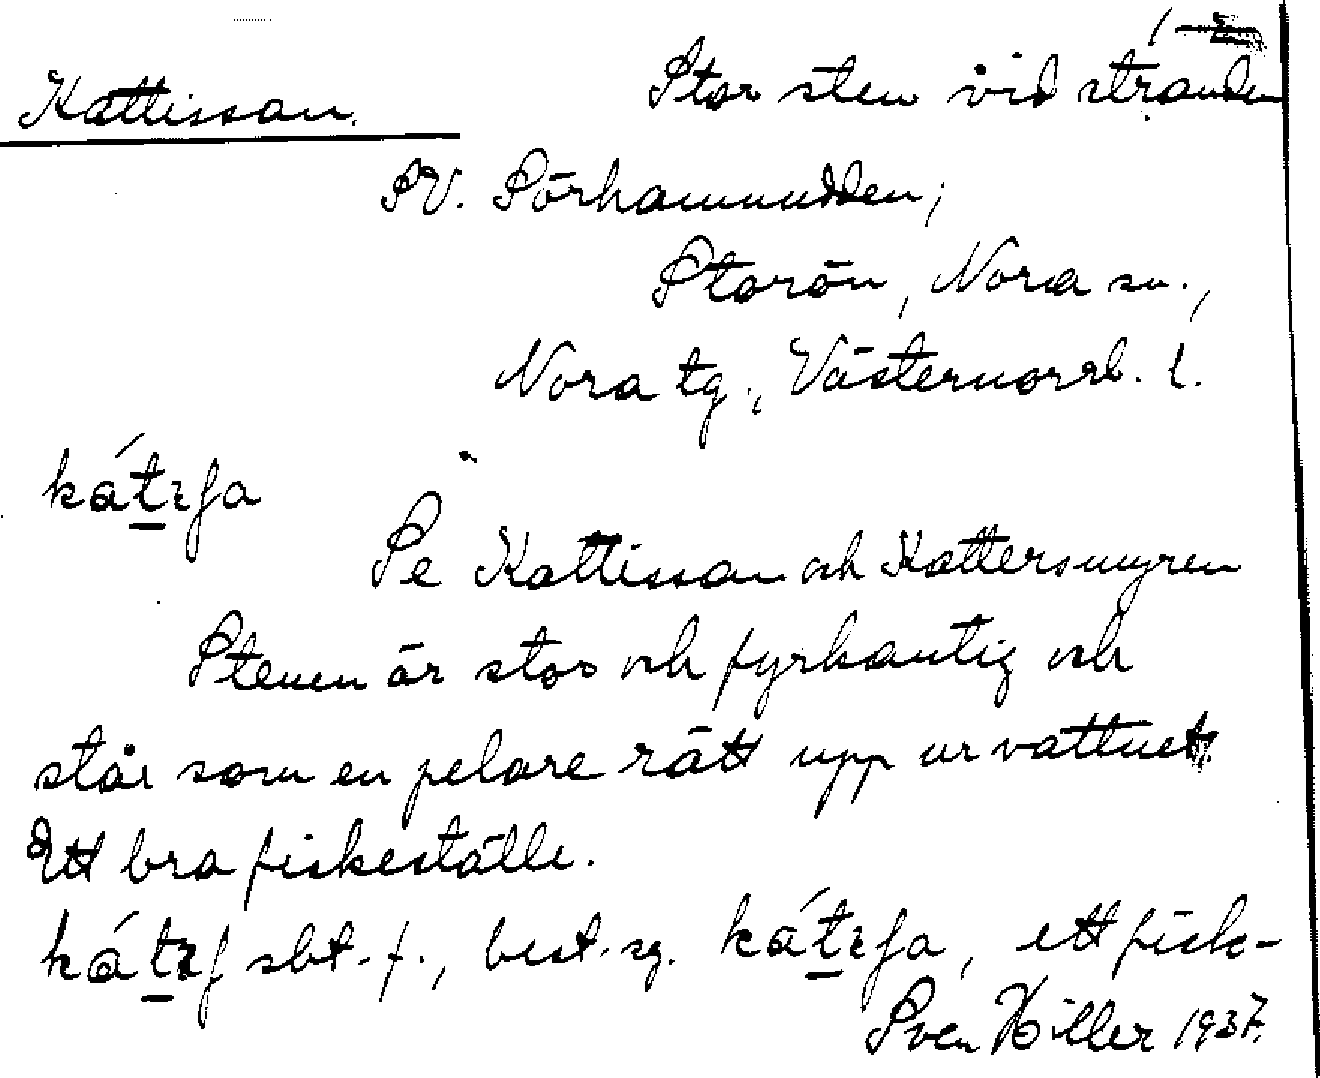 Kattissan.
Stor sten vid stranden
SV. Sörhamnudden,
Storön, Nora sn.,
Nora tg., Västernorrl. l.
Se Kattissan och Kattersmyren
Stenen är stor och fyrkantig och
står som en pelare rätt upp ur vattnet.
Ett bra fiskeställe.
sbt. f., best. sg. ett fisk-
Sven Hiller 1937.